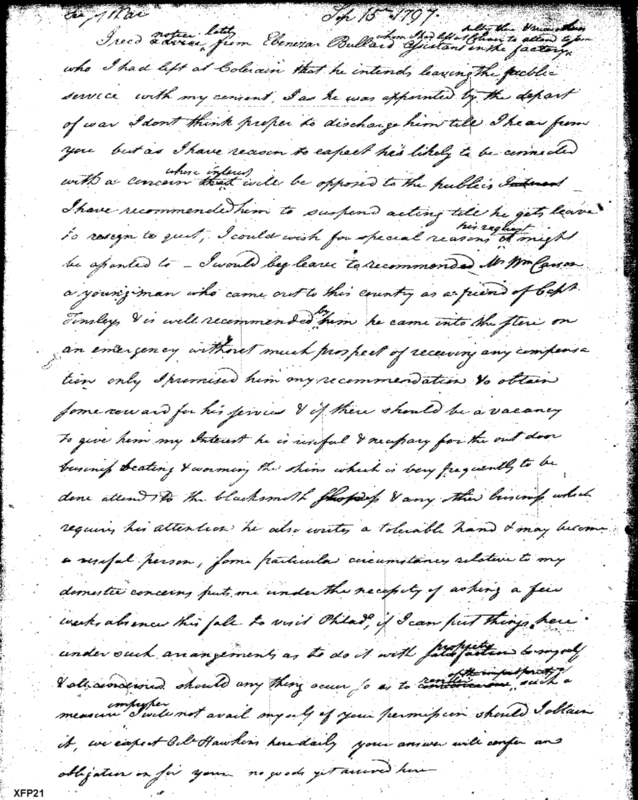 Sep 15th 1797.
notice lately when I had left as
I recd advice from Ebenezar Bullard assistant in the factory
who I had left at Colerain that he intends leaving the public
service with my consent, I as he was appointed by the depart
of war I dont think proper to discharge him till I hear from
you but as I have reason to expect he is likely to be connected
whose interest
with a concern that will be opposed to the publics Interest
I have recommended him to suspend acting till he gets leave
his request
to resign to quit, I could wish for special reasons it might
be granted to – I would beg leave to recommended Mr Wm Carson
a young man who came out to this country as a friend of Capt
Tinsleys & is well recommended by him he came into the store on
an emergency without much prospect of receiving any compensa
tion only I promised him my recommendation to obtain
some reward for his services & if there should be a vacancy
to give him my Interest he is useful & necessary for the out door
business beating & worming the skins which is very frequently to be
done attend to the blacksmith shop & any other business which
requires his attention he also writes a tolerable hand & may become
a useful person, some particular circumstances relative to my
domestic concerns puts me under the necessity of asking a few
weeks absence this fall to visit Philada, if I can put things here
under such arrangements as to do it with
propriety
satisfaction to myself
& all concerned should any thing occur so as to render such a
improper
measure I will not avail myself of your permission should I obtain
it, we expect Colo Hawkins here daily your answer will confer an
obligation on sir yours no goods yet arrived here
XFP21